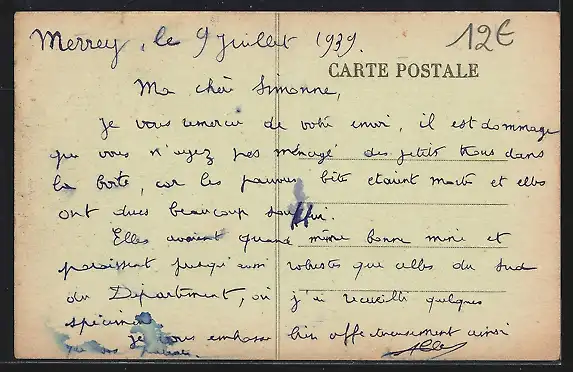 Merrey, le 9 juillet 1939.
12€
CARTE POSTALE
Ma chère Simonne,
Je vous remercie de votre envoi, il est dommage
que vous n'ayez pas ménagé des petits trous dans
la boîte, car les pauvres bêtes étaient mortes et elles
ont dues beaucoup souffrir.
Elles avaient quand même bonne mine et
paraissent jusqu'aussi robustes que celles du Sud
du Département, où j'ai recueilli quelques
spécimens.
Je vous embrasse bien affectueusement ainsi
que vos